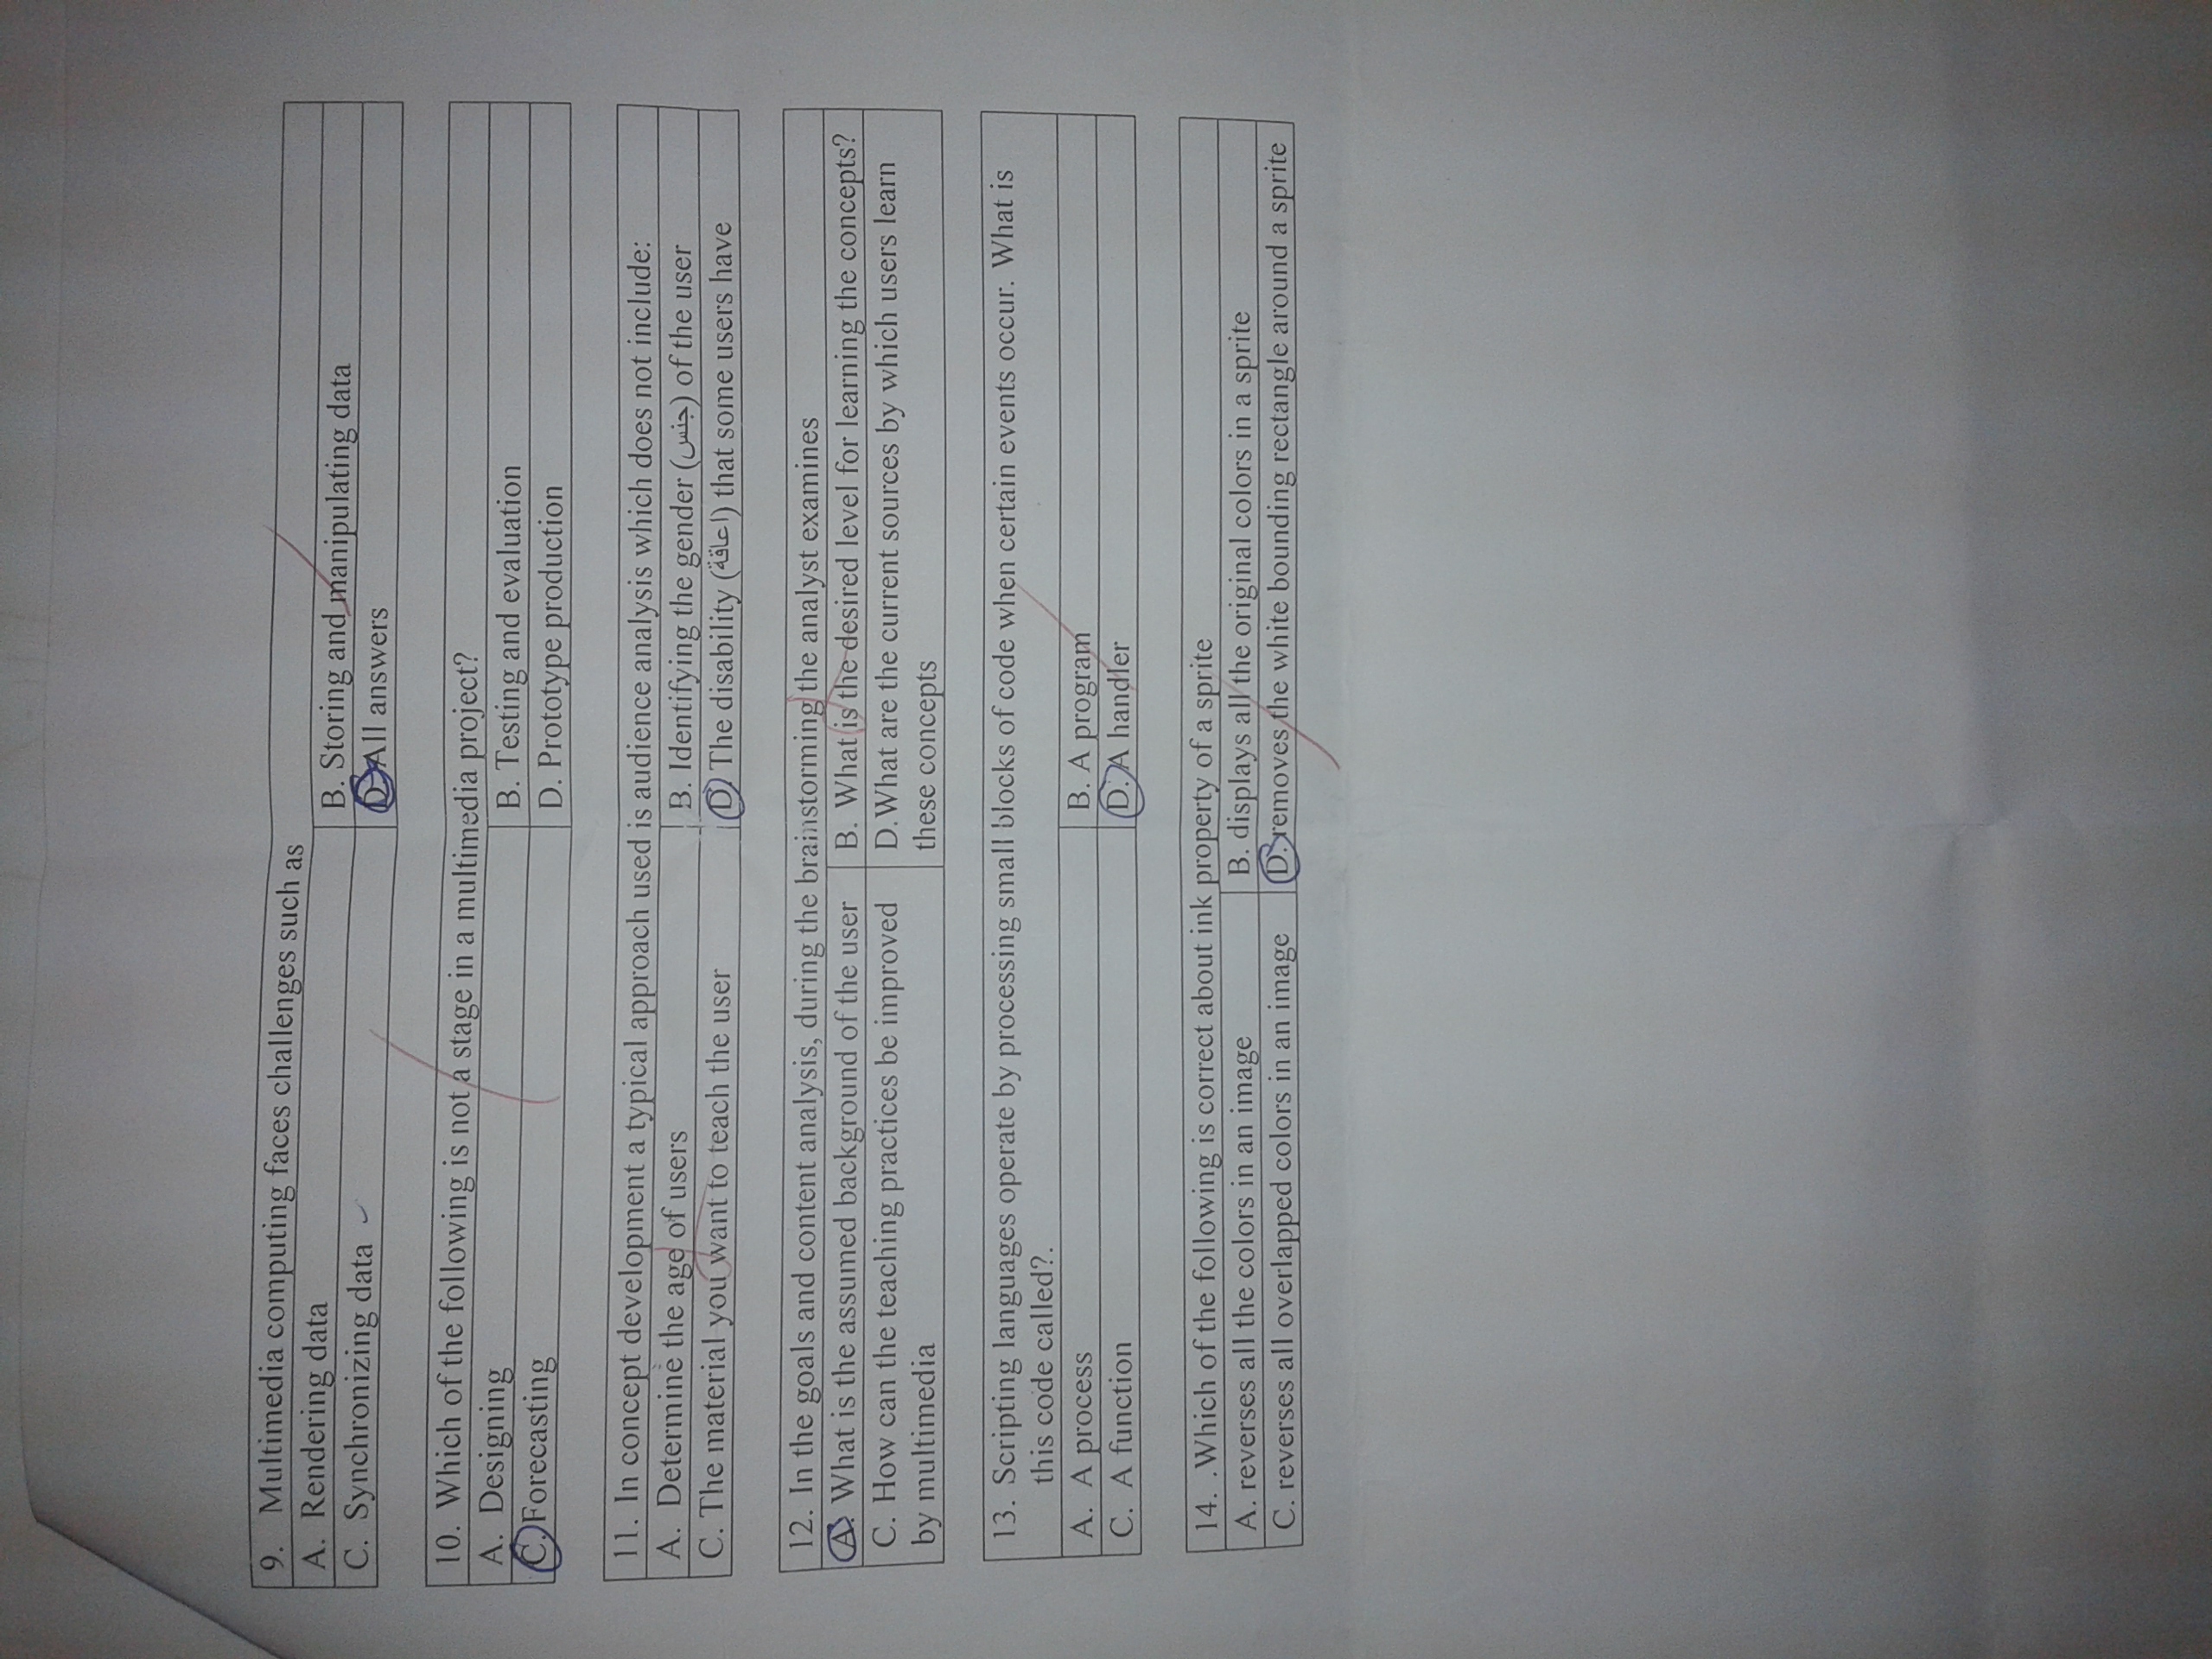 9. Multimedia computing faces challenges such as
A. Rendering data
B. Storing and manipulating data
C. Synchronizing data
D. All answers
10. Which of the following is not a stage in a multimedia project?
A. Designing
B. Testing and evaluation
C. Forecasting
D. Prototype production
11. In concept development a typical approach used is audience analysis which does not include:
A. Determine the age of users
B. Identifying the gender (جنس) of the user
C. The material you want to teach the user
D. The disability (اعاقة) that some users have
12. In the goals and content analysis, during the brainstorming the analyst examines
A. What is the assumed background of the user
B. What is the desired level for learning the concepts?
C. How can the teaching practices be improved
by multimedia
D.What are the current sources by which users learn
these concepts
13. Scripting languages operate by processing small blocks of code when certain events occur. What is
this code called?.
A. A process
B. A program
C. A function
D. A handler
14. .Which of the following is correct about ink property of a sprite
A. reverses all the colors in an image
B. displays all the original colors in a sprite
C. reverses all overlapped colors in an image
D. removes the white bounding rectangle around a sprite